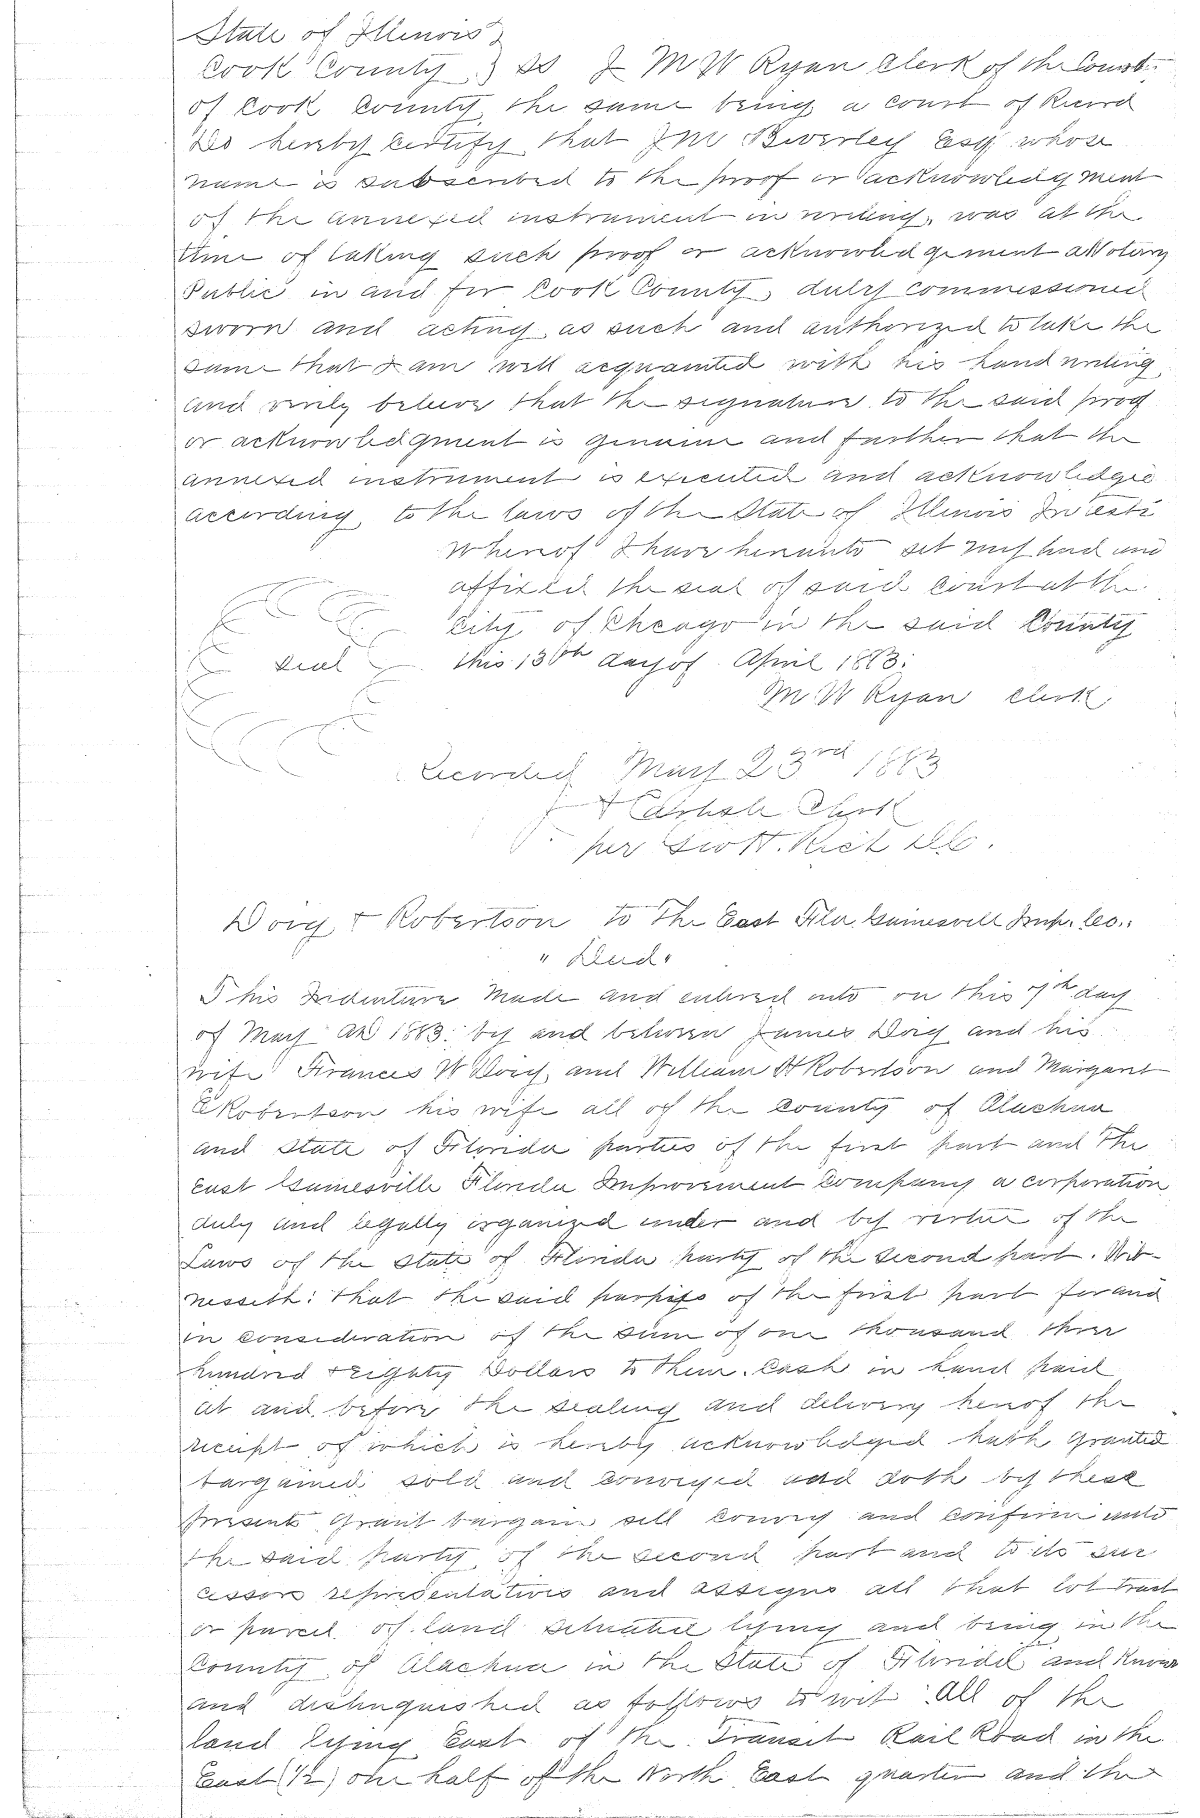 State of Illinois }
Cook County } SS I M W Ryan Clerk of the Court
of Cook County, the same being a court of Record
Do hereby certify that J M Beverley Esq whose
name is subscribed to the proof or acknowledgment
of the annexed instrument in writing, was at the
time of taking such proof or acknowledgement a Notary
Public in and for Cook County, duly commissioned
sworn and acting as such and authorized to take the
same that I am well acquainted with his hand writing
and verily believe that the signature to the said proof
or acknowledgment is genuine and further that the
annexed instrument is executed and acknowledged
according to the laws of the State of Illinois In testi
Whereof I have hereunto set my hand and
affixed the seal of said court at the
City of Chicago in the said County
seal this 13th day of April 1883.
M W Ryan Clerk
Recorded May 23rd 1883
Clerk
per D.C.
Doig & Robertson to The East Fla. Gainesvill Imp. Co.
" Deed "
This Indenture Made and entered into on this 7th day
of May AD 1883. by and between James Doig and his
wife Frances W Doig, and William H Robertson and Margaret
E Robertson his wife all of the County of Alachua
and State of Florida parties of the first part and The
East Gainesville Florida Improvement Company a corporation
duly and legally organized under and by virtue of the
Laws of the State of Florida party of the second part. Wit-
nesseth: that the said parties of the first part for and
in consideration of the sum of one thousand three
hundred & eighty Dollars to them. Cash in hand paid
at and before the sealing and delivery hereof the
receipt of which is hereby acknowledged hath granted
bargained sold and conveyed and doth by these
presents grant bargain sell convey and confirm unto
the said party of the second part and to its suc
cessors representatives and assigns all that lot tract
or parcel of land situated lying and being in the
County of Alachua in the State of Florida and Known
and distinguished as follows to wit: All of the
land lying East of the Transit Rail Road in the
East (1/2) one half of the North East quarter and the